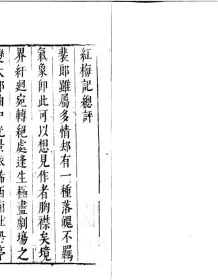 紅梅記總評
裴郎雖屬多情却有一種落魄不羈
氣象卽此可以想見作者胸襟矣境
界紆迴宛轉絕處逢生極盡劇塲之